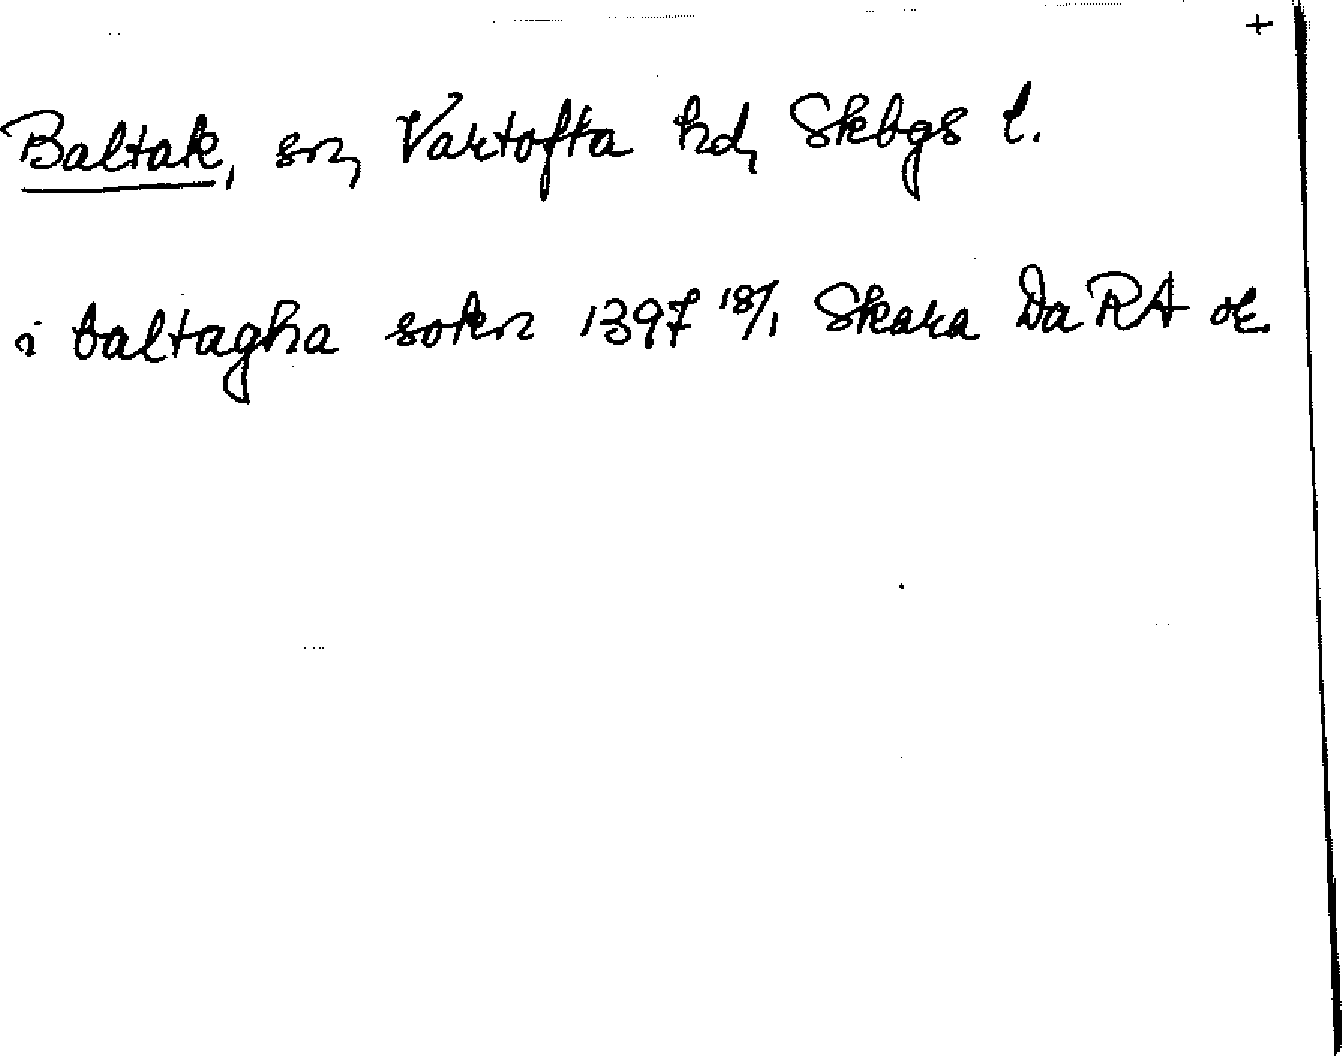 +
Baltak, sn, Vartofta hd, Skbgs l.
i baltagha sokn 1397 18/1 Skara DaRA or.